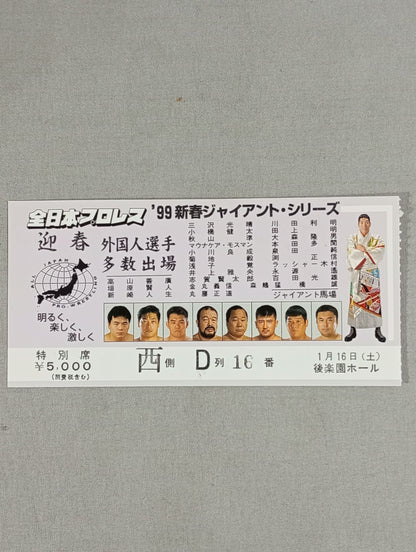 全日本プロレス
'99新春ジャイアント・シリーズ
迎春 外国人選手
多数出場
ALL JAPAN PRO-WRESTLING
明るく、
楽しく、
激しく
高山善廣
垣原賢人
新崎人生
三沢光晴
小橋健太
秋山準
マウナケア・モスマン
小川良成
菊地毅
浅子覚
井上雅央
志賀賢太郎
金丸義信
丸藤正道
川田利明
田上明
大森隆男
本田多聞
泉田純
渕正信
ラッシャー木村
永源遙
百田光雄
森嶋猛 橋誠
ジャイアント馬場
特別席
¥5,000
(消費税含む)
西側 D列 16番
1月16日(土)
後楽園ホール